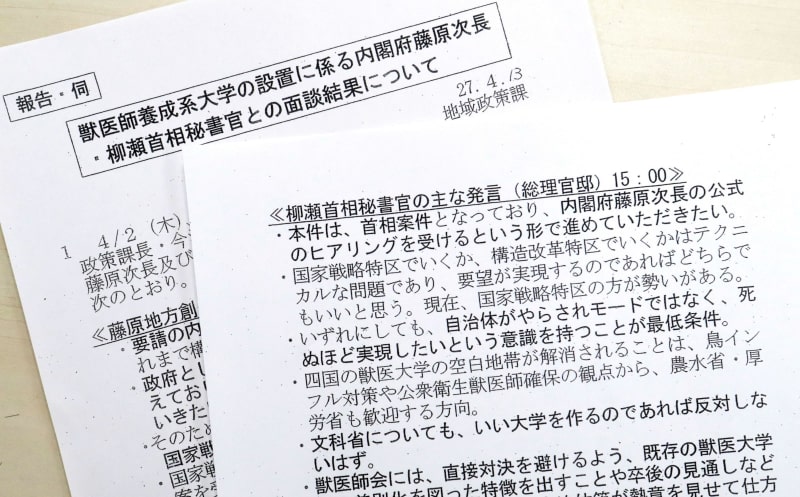 報告・伺
獣医師養成系大学の設置に係る内閣府藤原次長
・柳瀬首相秘書官との面談結果について
27. 4. 13
地域政策課
1 4/2 (木)
政策課長・今
藤原次長及び
次のとおり。
≪藤原地方創
・要請の内
れまで構
・政府とし
えてお
いきた
そのため
国家戦
・国家戦
≪柳瀬首相秘書官の主な発言（総理官邸）15：00≫
・本件は、首相案件となっており、内閣府藤原次長の公式
のヒアリングを受けるという形で進めていただきたい。
・国家戦略特区でいくか、構造改革特区でいくかはテクニ
カルな問題であり、要望が実現するのであればどちらで
もいいと思う。現在、国家戦略特区の方が勢いがある。
・いずれにしても、自治体がやらされモードではなく、死
ぬほど実現したいという意識を持つことが最低条件。
・四国の獣医大学の空白地帯が解消されることは、鳥イン
フル対策や公衆衛生獣医師確保の観点から、農水省・厚
労省も歓迎する方向。
・文科省についても、いい大学を作るのであれば反対しな
いはず。
・獣医師会には、直接対決を避けるよう、既存の獣医大学
差別化を図った特徴を出すことや卒後の見通しなど
熱意を見せて仕方